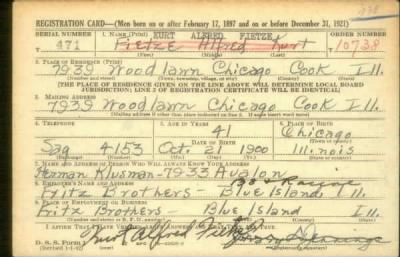 REGISTRATION CARD—(Men born on or after February 17, 1897 and on or before December 31, 1921)
SERIAL NUMBER 1. NAME (Print) KURT ALFRED FIETZE ORDER NUMBER
471 Fietze Alfred Kurt 10738
(First) (Middle) (Last)
2. PLACE OF RESIDENCE (Print)
7939 Woodlawn Chicago Cook Ill.
(Number and street) (Town, township, village, or city) (County) (State)
[THE PLACE OF RESIDENCE GIVEN ON THE LINE ABOVE WILL DETERMINE LOCAL BOARD
JURISDICTION; LINE 2 OF REGISTRATION CERTIFICATE WILL BE IDENTICAL]
3. MAILING ADDRESS
7939 Woodlawn Chicago Cook Ill.
4. TELEPHONE 5. AGE IN YEARS 6. PLACE OF BIRTH
41 Chicago
DATE OF BIRTH
Sag 4153 Oct. 21 1900 Illinois
7. NAME AND ADDRESS OF PERSON WHO WILL ALWAYS KNOW YOUR ADDRESS
Herman Klusman-7933 Avalon
8. EMPLOYER'S NAME AND ADDRESS
Fritz Brothers - Blue Island Ill.
9. PLACE OF EMPLOYMENT OR BUSINESS
Fritz Brothers - Blue Island Ill
I AFFIRM THAT I HAVE VERIFIED ABOVE ANSWERS AND THAT THEY ARE TRUE.
D. S. S. Form 1
(Revised 1-1-42)
Kurt Alfred Fietze